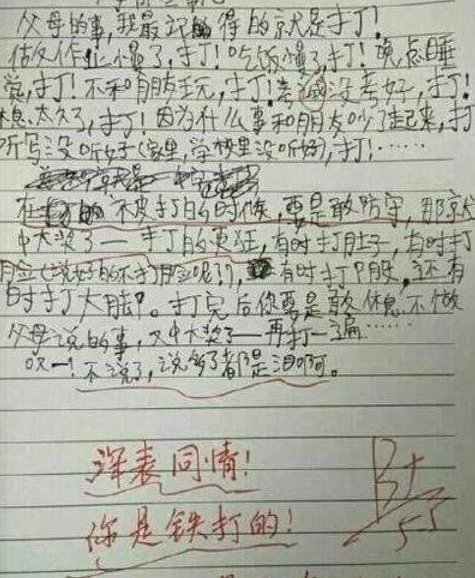 父母的事,我最记的得的就是打!
做作业慢了,打!吃饭慢了,打!晚点睡
觉,打!不和朋友玩,打!考试没考好,打!
休息太久了,打!因为什么事和朋友吵了起来,打
听写没听好(家里,学校里没听好),打!……
在 不皮打的时候,要是敢防守,那就
中大奖了——打的更狂,有时打肚子,有时打
脸(说好的不打脸呢?),有时打腿,还有
时打大腿。打完后你要是敢休息不做
父母说的事,又中大奖了——再打一遍……
哎—!不说了,说多了都是泪啊。
深表同情!
你是铁打的!
B+